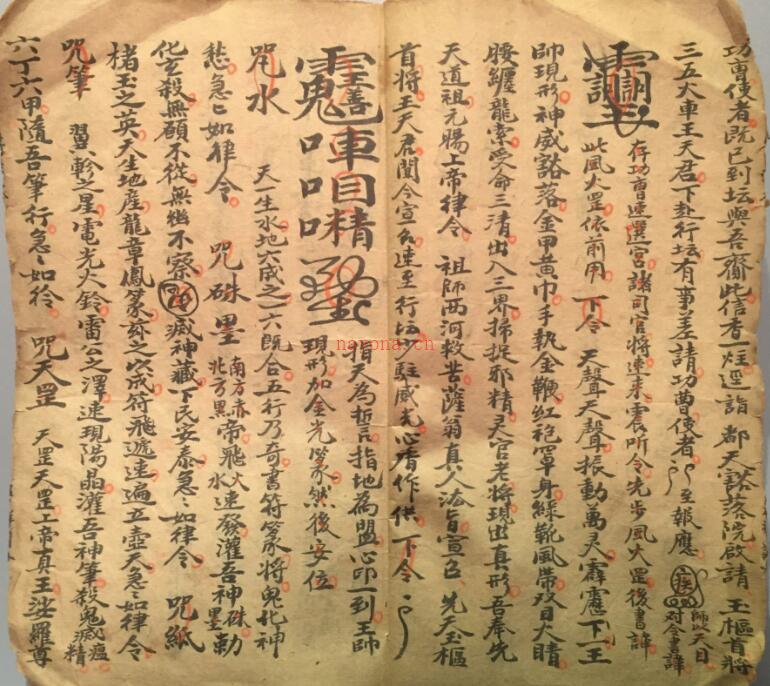 功曹使者既已到坛與吾齎此信香一炷逕詣 都天豁落院啟請 玉樞首將
三五火車王天君下赴行坛有事差請功曹使者 至報應
存功曹速選宮諸司官將速来震所令先步風火罡後書諱 師此天目 对令書諱
此風火罡依前用 下令 天聲天聲振動萬灵霹靂下一王
帅現形神威豁落金甲黄巾手執金鞭红袍罩身綠靴風帶双目大睛
腰纏龍索受命三清出入三界掃捉邪精灵官老將現出真形吾奉先
天道祖元陽上帝律令 祖師两河救苦薩翁真人法旨宣召 先天玉樞
首將王天君聞令宣召速至行坛駐威光心香作供下令
指天為誓言指地為盟心印一到王帅
車目精
口口口 現形加金光篆然後安位
咒水 天一生水地六成之一六既合五行乃奇書符篆將鬼化神
愁急急如律令 咒硃墨 南方赤 北方黑 帝飛 火 水 速發灌吾神 硃 墨 勅
化玄殺無碩不從無幽不察 滅神藏下民安泰急急如律令 咒紙
楮玉之英天生地產龍章鳳篆敕之次成符飛遞速遍五壺天急急如律令
咒筆 翼軫之星電光火鈴雷公之澤速現陽晶灌吾神筆殺鬼滅瘟精
六丁六甲隨吾筆行急急如律令 咒天罡 天罡天罡上帝真王娑羅尊